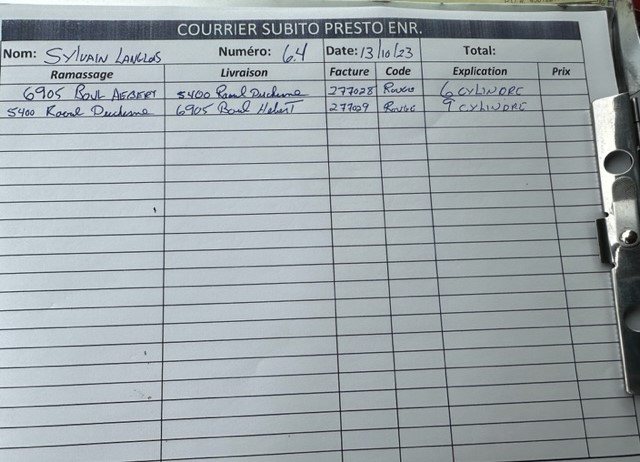 COURRIER SUBITO PRESTO ENR.
Nom: SYLVAIN LANGLOIS Numéro: 6.4 Date: 13/10/23 Total:
Ramassage Livraison Facture Code Explication Prix
6905 BOUL HEBERT 5400 Raoul Duchesne 277028 ROUGE 6 CYLINDRE
5400 Raoul Duchesne 6905 Boul Hebert 277029 ROUGE 9 CYLINDRE